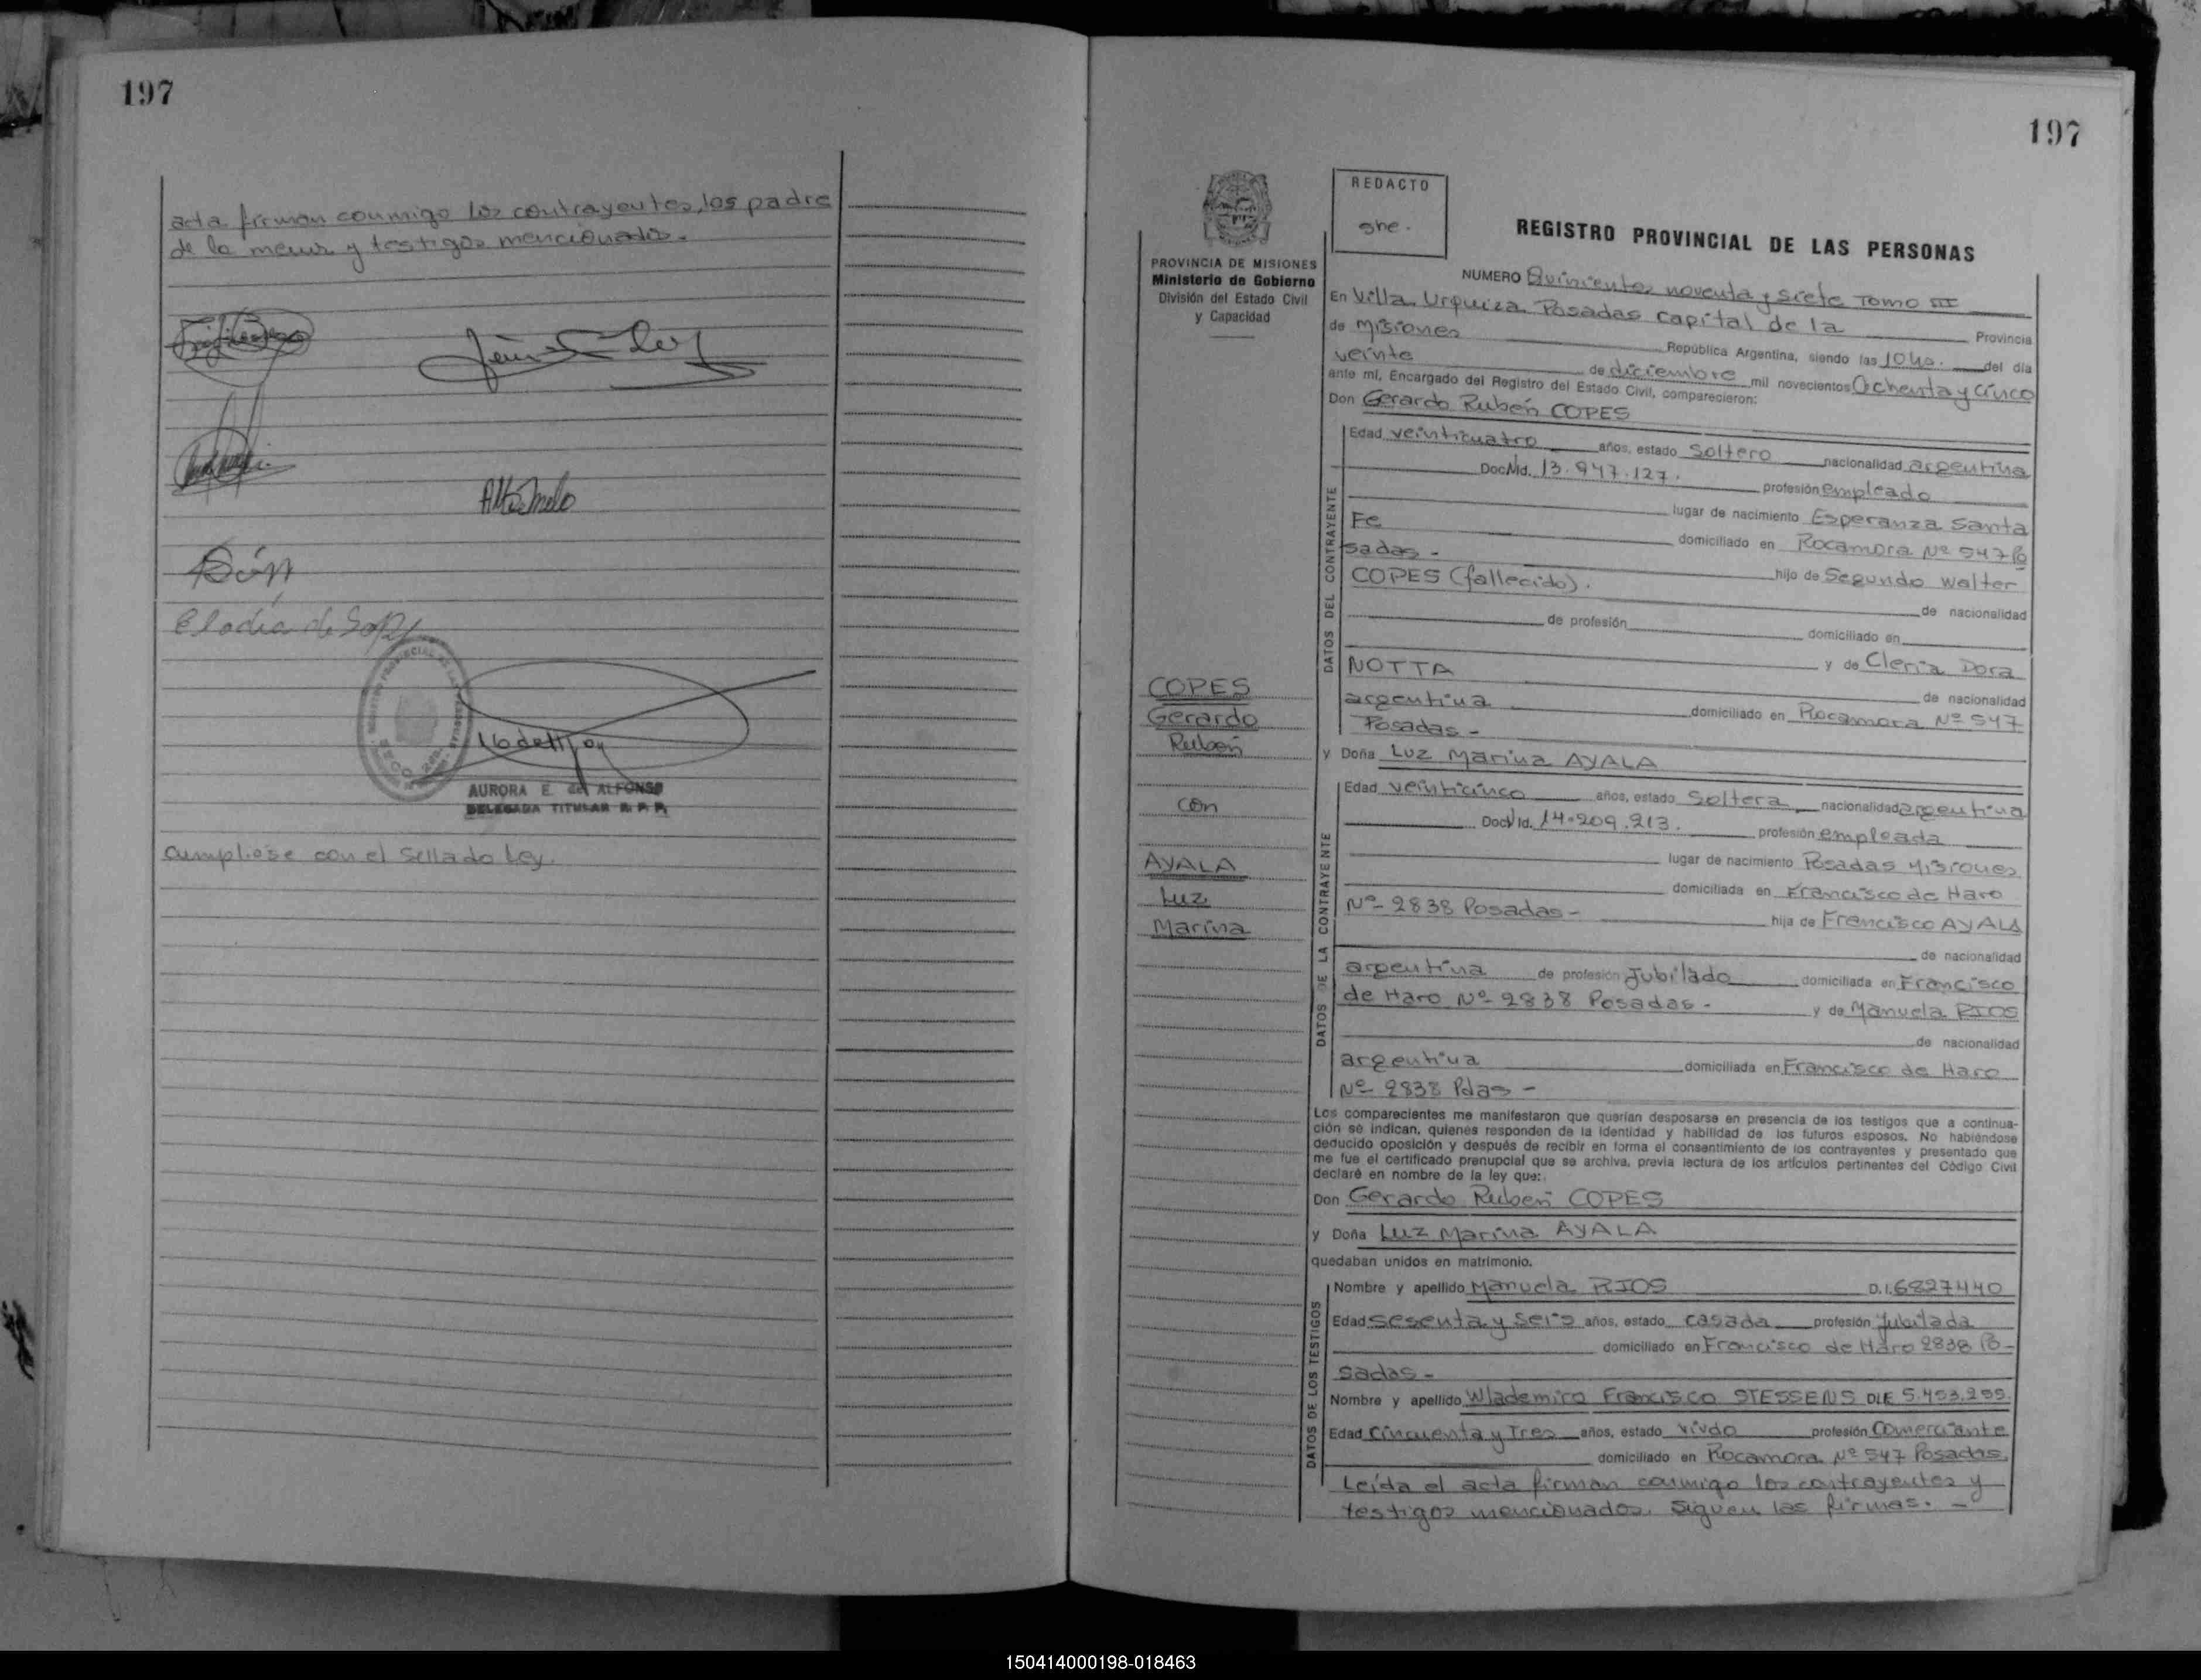 197
acta firman conmigo los contrayentes, los padre
de la menor y testigos mencionados.
Elodia de
16 de
AURORA E. de ALFONSO
DELEGADA TITULAR R. P. P.
cumpliose con el sellado Ley.
197
REDACTO
PROVINCIA DE MISIONES
Ministerio de Gobierno
División del Estado Civil
y Capacidad
REGISTRO PROVINCIAL DE LAS PERSONAS
NUMERO Quinientos noventa y siete Tomo III
En Villa Urquiza Posadas capital de la Provincia
de Misiones República Argentina, siendo las 10 hs. del día
veinte de diciembre mil novecientos Ochenta y Cinco
ante mí, Encargado del Registro del Estado Civil, comparecieron:
Don Gerardo Rubén COPES
DATOS DEL CONTRAYENTE
Edad veinticuatro años, estado Soltero nacionalidad argentina
Doc. Nid. 13.947.127. profesión empleado
lugar de nacimiento Esperanza Santa
Fe domiciliado en Rocamora Nº 547 Po
sadas - hijo de Segundo Walter
COPES (fallecido). de nacionalidad
de profesión domiciliado en
y de Cleria Dora
NOTTA de nacionalidad
argentina domiciliado en Rocamora Nº 547
Posadas -
COPES
Gerardo
Rubén
con
AYALA
Luz
Marina
y Doña Luz Marina AYALA
DATOS DE LA CONTRAYENTE
Edad veinticinco años, estado Soltera nacionalidad argentina
Doc. Id. 14.209.213. profesión empleada
lugar de nacimiento Posadas Misiones
domiciliada en Francisco de Haro
Nº 2838 Posadas - hija de Francisco AYALA
de nacionalidad
argentina de profesión Jubilado domiciliada en Francisco
de Haro Nº 2838 Posadas - y de Manuela RIOS
de nacionalidad
argentina domiciliada en Francisco de Haro
Nº 2838 Pdas -
Los comparecientes me manifestaron que querían desposarse en presencia de los testigos que a continua-
ción se indican, quienes responden de la identidad y habilidad de los futuros esposos. No habiéndose
deducido oposición y después de recibir en forma el consentimiento de los contrayentes y presentado que
me fue el certificado prenupcial que se archiva, previa lectura de los artículos pertinentes del Código Civil
declaré en nombre de la ley que:
Don Gerardo Rubén COPES
y Doña Luz Marina AYALA
quedaban unidos en matrimonio.
DATOS DE LOS TESTIGOS
Nombre y apellido Manuela RIOS D.I. 6827440
Edad sesenta y seis años, estado casada profesión jubilada
domiciliado en Francisco de Haro 2838 Po-
sadas -
Nombre y apellido Wlademiro Francisco STESSENS DIE 5.453.255.
Edad Cincuenta y Tres años, estado viudo profesión Comerciante
domiciliado en Rocamora Nº 547 Posadas.
Leída el acta firman conmigo los contrayentes y
testigos mencionados. Siguen las firmas. -
150414000198-018463